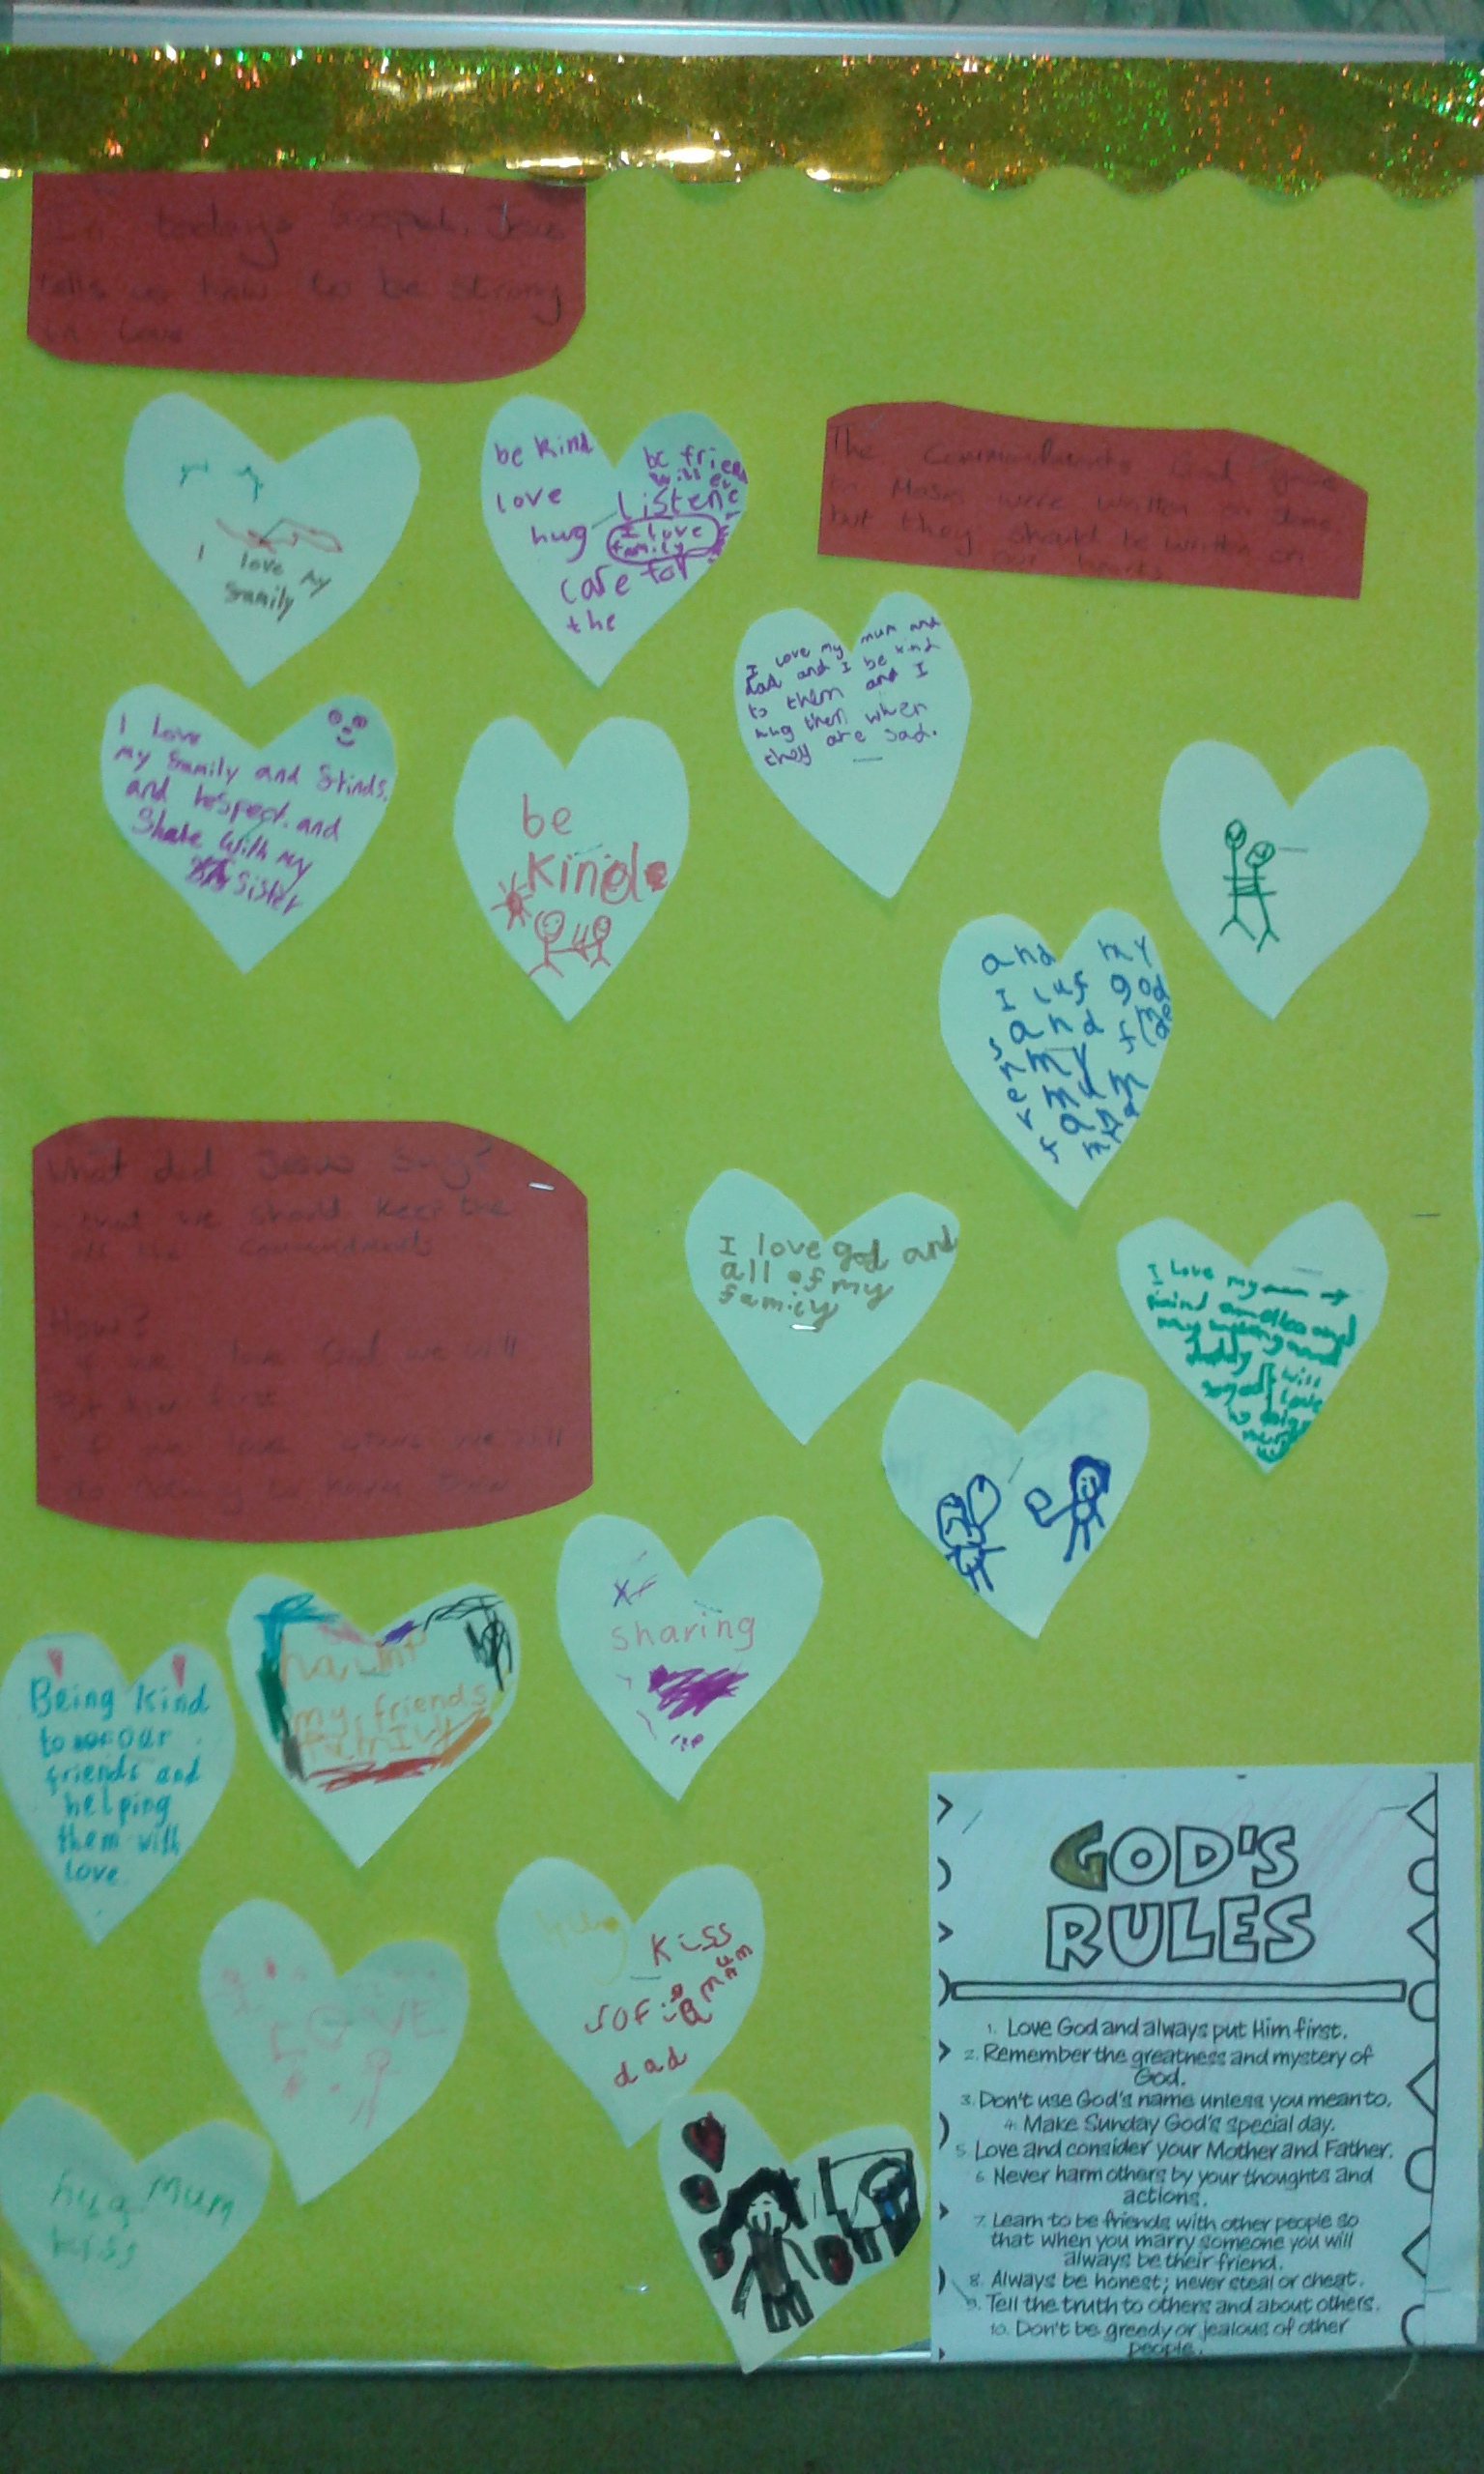 In todays Gospel, Jesus
tells us how to be strong
in love
The Commandments God gave
to Moses were written on stone
but they should be written on
our hearts
I love my
family
be kind
love
hug
be frien
listene
I love
family
care for
the
I love my mum and
dad and I be kind
to them and I
hug them when
they are sad.
I love
my family and
and respect and
Share with my
sister
be
kind
and my
I luf god
and
my
mum
and
What did Jesus say?
that we should keep the
all the Commandments
How?
if we love God we will
Put him first
if we love others we will
do nothing to harm them
I love god and
all of my
family
I love my
sharing
Being kind
to our
friends and
helping
them with
love
my friends
family
LOVE
hug
kiss
mum
dad
hug Mum
kiss
GOD'S
RULES
1. Love God and always put Him first.
2. Remember the greatness and mystery of
God.
3. Don't use God's name unless you mean to.
4. Make Sunday God's special day.
5. Love and consider your Mother and Father.
6. Never harm others by your thoughts and
actions.
7. Learn to be friends with other people so
that when you marry someone you will
always be their friend.
8. Always be honest; never steal or cheat.
9. Tell the truth to others and about others.
10. Don't be greedy or jealous of other
people.